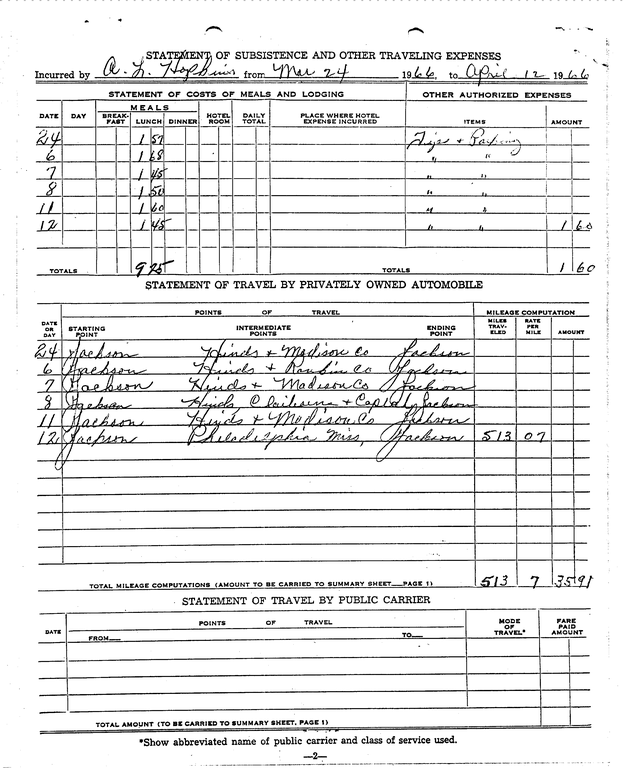 STATEMENT OF SUBSISTENCE AND OTHER TRAVELING EXPENSES
Incurred by A. L. Hopkins from Mar 24 1966, to April 12 1966
STATEMENT OF COSTS OF MEALS AND LODGING OTHER AUTHORIZED EXPENSES
DATE DAY MEALS BREAK-FAST LUNCH DINNER HOTEL ROOM DAILY TOTAL PLACE WHERE HOTEL EXPENSE INCURRED ITEMS AMOUNT
24 1 57 Tips & Parking
6 1 68 " "
7 1 45 " "
8 1 50 " "
11 1 60 " "
12 1 45 " " 1 60
TOTALS 9 25 TOTALS 1 60
STATEMENT OF TRAVEL BY PRIVATELY OWNED AUTOMOBILE
POINTS OF TRAVEL MILEAGE COMPUTATION
DATE OR DAY STARTING POINT INTERMEDIATE POINTS ENDING POINT MILES TRAV-ELED RATE PER MILE AMOUNT
24 Jackson Hinds & Madison Co Jackson
6 Jackson Hinds & Rankin Co Jackson
7 Jackson Hinds & Madison Co Jackson
8 Jackson Hinds Claiborne & Jackson
11 Jackson Hinds & Madison Co Jackson
12 Jackson Philadelphia Miss, Jackson 513 07
TOTAL MILEAGE COMPUTATIONS (AMOUNT TO BE CARRIED TO SUMMARY SHEET—PAGE 1) 513 7 35 91
STATEMENT OF TRAVEL BY PUBLIC CARRIER
DATE POINTS OF TRAVEL MODE OF TRAVEL* FARE PAID AMOUNT
FROM— TO—
TOTAL AMOUNT (TO BE CARRIED TO SUMMARY SHEET, PAGE 1)
*Show abbreviated name of public carrier and class of service used.
—2—